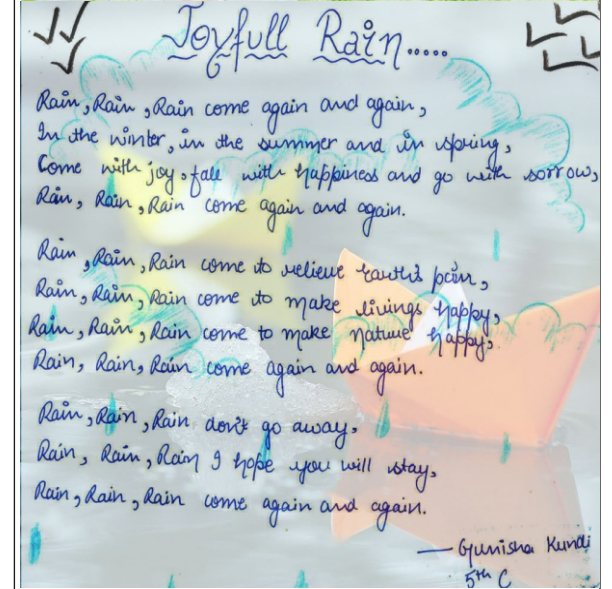 Joyfull Rain.....
Rain, Rain, Rain come again and again,
In the winter, in the summer and in spring,
Come with joy, fall with happiness and go with sorrow,
Rain, Rain, Rain come again and again.
Rain, Rain, Rain come to relieve earth's pain,
Rain, Rain, Rain come to make livings happy,
Rain, Rain, Rain come to make nature happy,
Rain, Rain, Rain come again and again.
Rain, Rain, Rain don't go away,
Rain, Rain, Rain I hope you will stay,
Rain, Rain, Rain come again and again.
— Gunisha Kundi
5th C